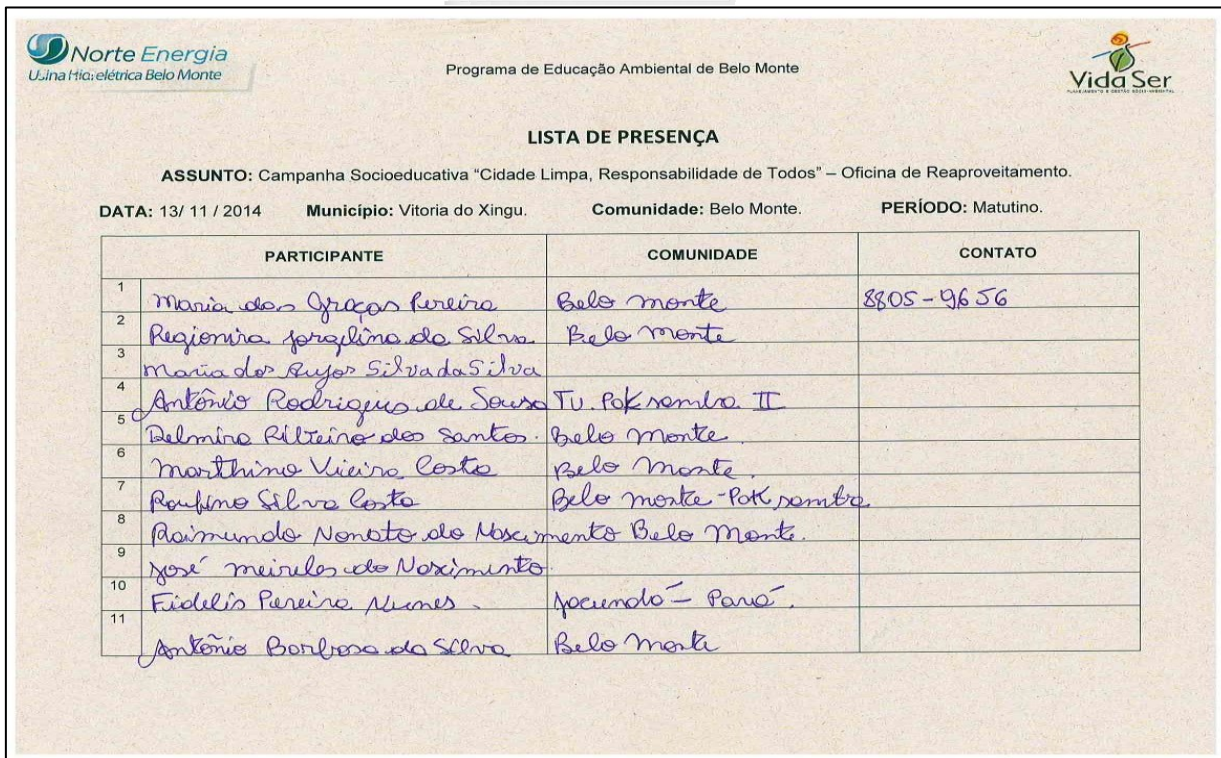 Norte Energia
Usina Hidrelétrica Belo Monte
Programa de Educação Ambiental de Belo Monte
Vida Ser
LISTA DE PRESENÇA
ASSUNTO: Campanha Socioeducativa “Cidade Limpa, Responsabilidade de Todos” – Oficina de Reaproveitamento.
DATA: 13/ 11 / 2014 Município: Vitoria do Xingu. Comunidade: Belo Monte. PERÍODO: Matutino.
PARTICIPANTE COMUNIDADE CONTATO
1 Maria das Graças Pereira Belo monte 8805-9656
2 Regionira jorgelina da Silva Belo monte
3 Maria dos Anjos Silva da Silva
4 Antônio Rodrigues de Sousa TV. Pok sombra II
5 Delmira Ribeiro dos Santos. Belo monte.
6 Marthino Vieira Costa Belo monte.
7 Roufino Silva Costa Belo monte - Pok sombra
8 Raimundo Nonato do Nascimento Belo Monte.
9 José meireles do Nascimento.
10 Fidelis Pereira Nunes. Jacundá - Pará.
11 Antônio Barbosa da Silva Belo Monte